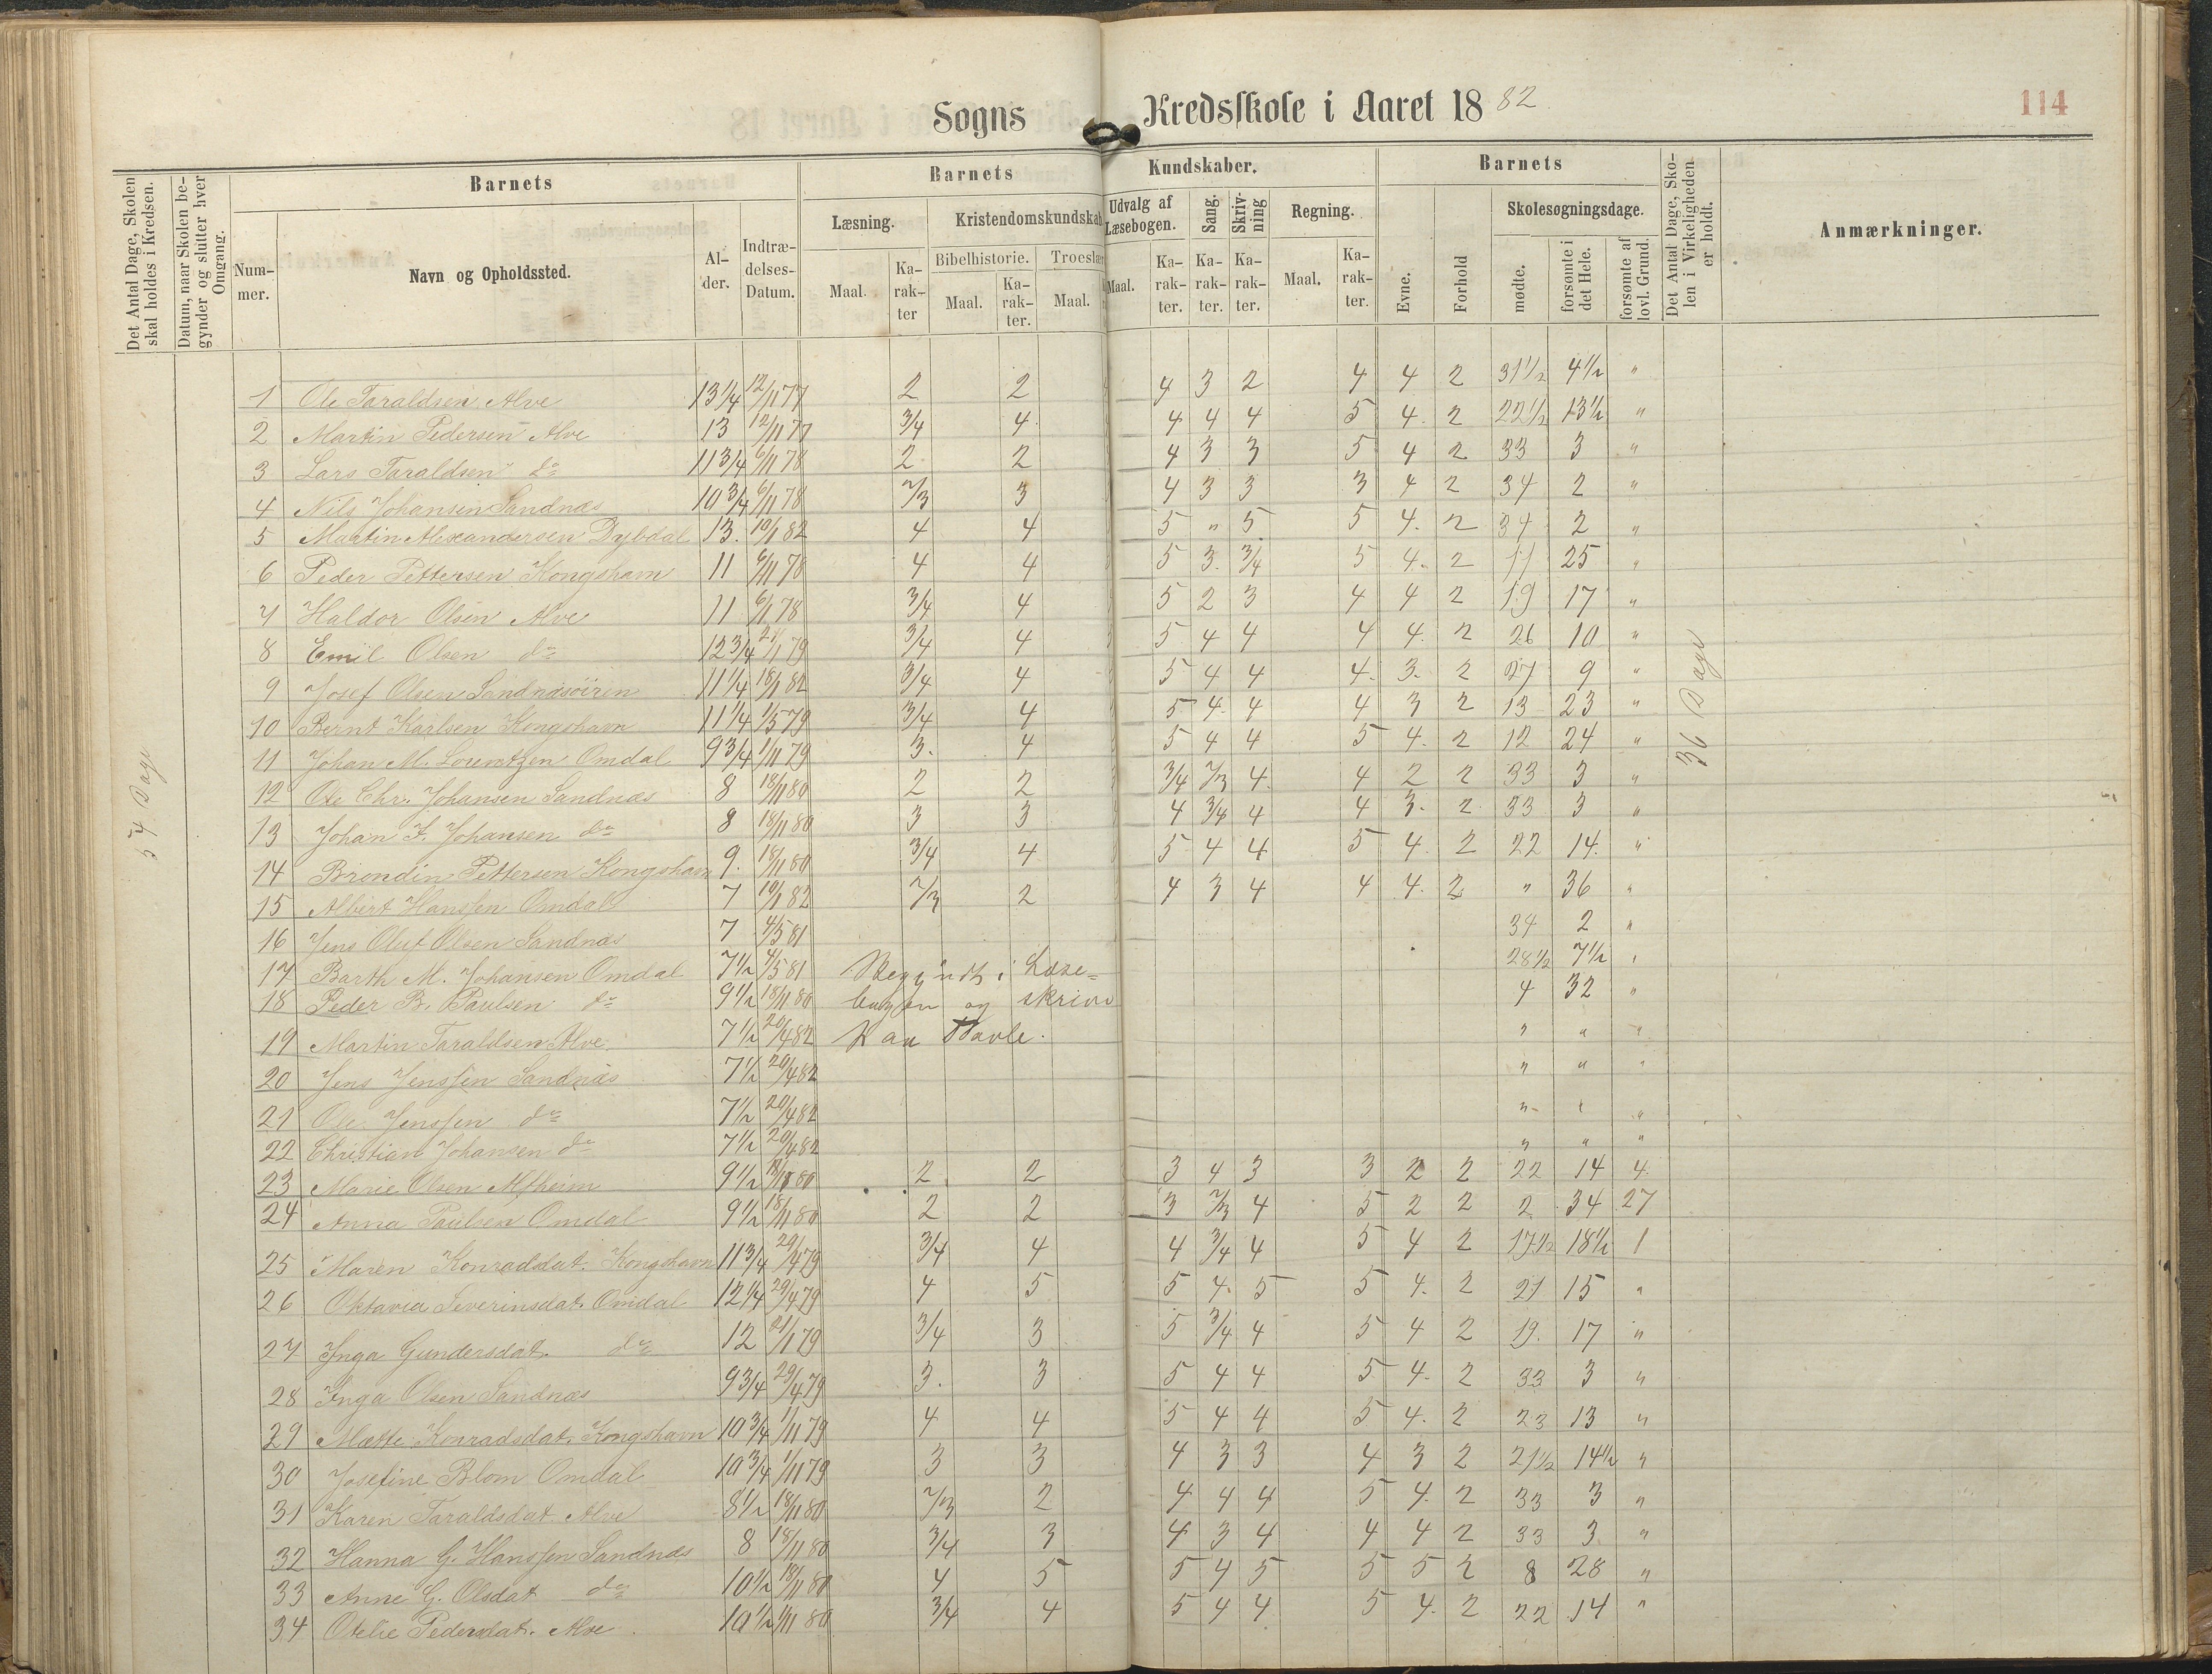 Sogns Kredsskole i Aaret 1882.
114
Det Antal Dage, Skolen skal holdes i Kredsen.
Datum, naar Skolen begynder og slutter hver Omgang.
Barnets
Nummer.
Navn og Opholdssted.
Alder.
Indtrædelses-Datum.
Barnets Kundskaber.
Læsning.
Maal. Karakter
Kristendomskundskab
Bibelhistorie.
Maal. Karakter.
Troeslær
Maal.
Udvalg af Læsebogen.
Maal. Karakter.
Sang.
Karakter.
Skrivning
Karakter.
Regning.
Maal. Karakter.
Barnets
Evne.
Forhold
Skolesøgningsdage.
mødte.
forsømte i det Hele.
forsømte af lovl. Grund.
Det Antal Dage, Skolen i Virkeligheden er holdt.
Anmærkninger.
54 Dage
36 Dage
1 Ole Taraldsen Alve 13 1/4 12/11 77 2 2 4 3 2 4 4 2 31 1/2 4 1/2 "
2 Martin Pedersen Alve 13 12/11 77 3/4 4 4 4 4 5 4 2 22 1/2 13 1/2 "
3 Lars Taraldsen do 11 3/4 6/11 78 2 2 4 3 3 5 4 2 33 3 "
4 Nils Johansen Sandnæs 10 3/4 6/11 78 2/3 3 4 3 3 3 4 2 34 2 "
5 Martin Alexandersen Dybdal 13. 10/1 82 4 4 5 " 5 5 4. 2 34 2 "
6 Peder Pettersen Kongshavn 11 6/11 78 4 4 5 3. 3/4 5 4. 2 11 25 "
7 Haldor Olsen Alve 11 6/11 78 3/4 4 5 2 3 4 4 2 19 17 "
8 Emil Olsen do 12 3/4 21/1 79 3/4 4 5 4 4 4 4. 2 26 10 "
9 Josef Olsen Sandnæsöiren 11 1/4 18/1 82 3/4 4 5 4 4 4. 3. 2 27 9 "
10 Bernt Karlsen Kongshavn 11 1/4 1/5 79 3/4 4 5 4 4 4 3 2 13 23 "
11 Johan M. Lorentzen Omdal 9 3/4 1/11 79 3. 4 5 4 4 5 4. 2 12 24 "
12 Ole Chr. Johansen Sandnæs 8 18/11 80 2 2 3/4 2/3 4. 4 2 2 33 3 "
13 Johan F. Johansen do 8 18/11 80 3 3 4 3/4 4 4 3. 2 33 3 "
14 Brendin Pettersen Kongshavn 9. 18/11 80 3/4 4 5 4 4 5 4. 2 22 14. "
15 Albert Hanssen Omdal 7 10/1 82 2/3 2 4 3 4 4 4. 2 " 36 "
16 Jens Oluf Olsen Sandnæs 7 4/5 81 34 2 "
17 Barth M. Johansen Omdal 7 1/2 4/5 81 Begyndt i Læse= 28 1/2 7 1/2 "
18 Peder B. Paulsen do 9 1/2 18/11 80 bogen og skrive 4 32 "
19 Martin Taraldsen Alve 7 1/2 20/4 82 paa Tavle. " " "
20 Jens Jenssen Sandnæs 7 1/2 20/4 82 " " "
21 Ole Jenssen do 7 1/2 20/4 82 " " "
22 Christian Johansen do 7 1/2 20/4 82 " " "
23 Marie Olsen Alfheim 9 1/2 18/11 80 2 2 3 4 3 3 2 2 22 14 4
24 Anna Paulsen Omdal 9 1/2 18/11 80 2 2 3 2/3 4 5 2 2 2 34 27
25 Maren Konradsdat. Kongshavn 11 3/4 29/4 79 3/4 4 4 3/4 4 5 4 2 17 1/2 18 1/2 1
26 Oktavia Severinsdat. Omdal 12 1/4 29/4 79 4 5 5 4. 5 5 4. 2 21 15 "
27 Inga Gundersdat. do 12 21/1 79 3/4 3 5 3/4 4 5 4 2 19. 17 "
28 Inga Olsen Sandnæs 9 3/4 29/4 79 3. 3 5 4 4 5 4. 2 33 3 "
29 Mætte Konradsdat. Kongshavn 10 3/4 1/11 79 4 4 5 4 4 5 4. 2 23 13 "
30 Josefine Blom Omdal 10 3/4 1/11 79 3 3 4 3 3 4 3 2 21 1/2 14 1/2 "
31 Karen Taraldsdat. Alve 8 1/2 18/11 80 2/3 2 4 4 4 5 4. 2 33 3 "
32 Hanna G. Hanssen Sandnæs 8 18/11 80 3/4 3 4 3 4 4 4 2 33 3. "
33 Anne G. Olsdat do 10 1/2 18/11 80 4 5 5 4 5 5 5 2 8 28 "
34 Otelie Pedersdat. Alve 10 1/2 1/11 80 3/4 4 5 4 4 5 4. 2 22 14 "